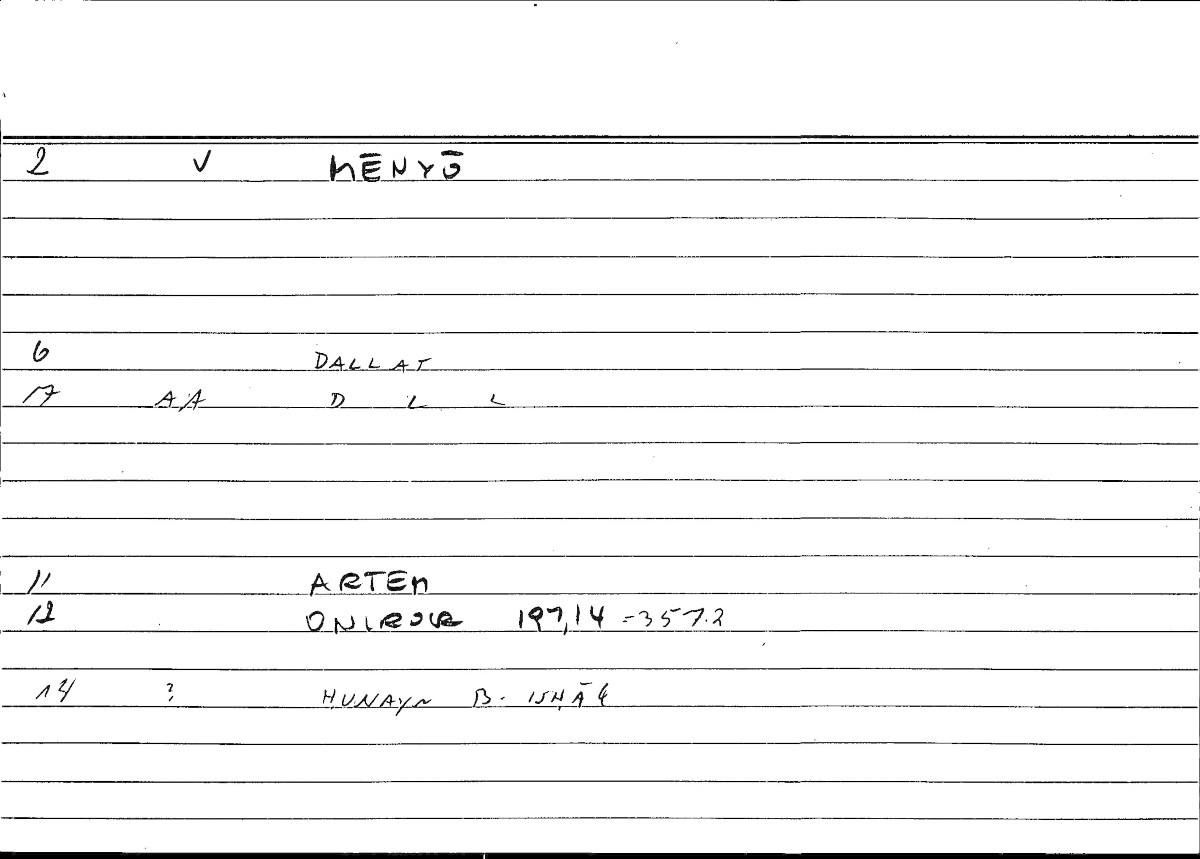 2 V MĒNYŌ
6 DALLAT
17 A/A D L L
11 ARTEM
12 ONIROCR 197,14 = 357.2
14 ? ḤUNAYN B. ISḤĀQ